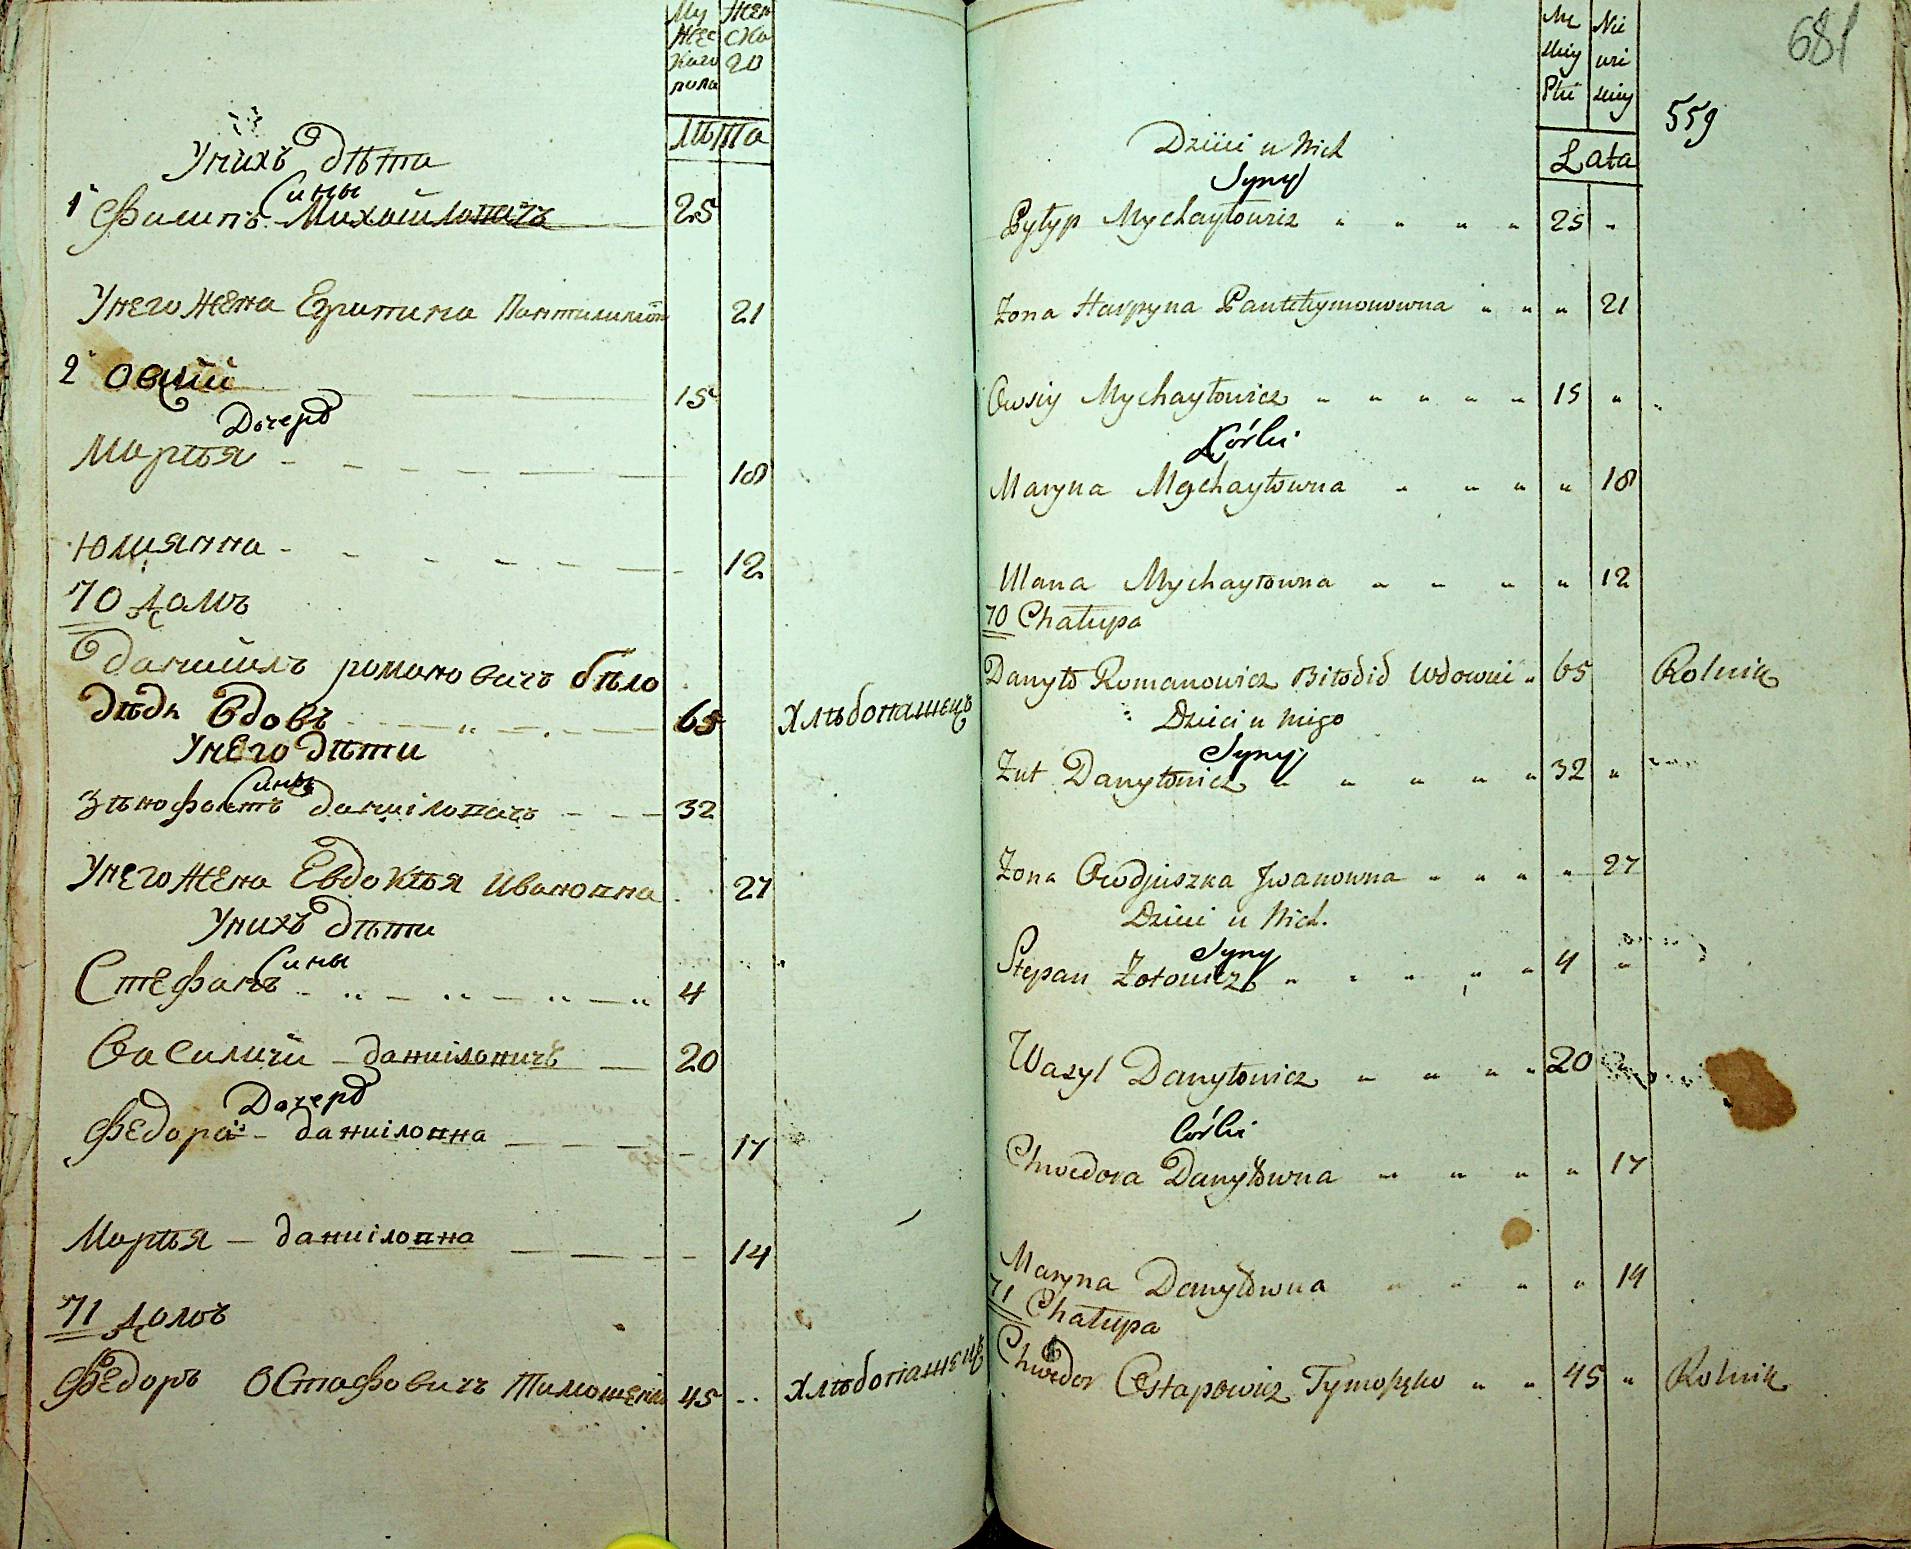 Му Жен
жес ска
каго го
пола
Лѣта
Унихъ дѣти
Сины
1 Филипъ Михайловичъ 25
Унего жена Еурипина Пантилимон 21
2 Овсій 15
Дочерѣ
Марья 18
Юлиянна 12
70 домъ
Даниилъ романовичъ бѣло
дѣдъ вдовъ 65 Хлѣбопашецъ
Унего дѣти
Сины
Зѣнофонтъ даниіловичъ 32
Унего жена Евдокѣя Ивановна 27
Унихъ дѣти
Сины
Стефанъ 4
Василий даниіловичъ 20
Дочерѣ
Федора даниіловна 17
Марѣя даниіловна 14
71 домъ
Федоръ Остафовичъ Тимошенко 45 Хлѣбопашецъ
681
559
Lata
Dzieci u Nich
Syny
Pyłyp Mychayłowicz 25
Żona Harpyna Pantełymonowna 21
Owsiy Mychayłowicz 15
Córki
Maryna Mychayłowna 18
Ulana Mychayłowna 12
70 Chałupa
Danyło Romanowicz Biłodid Wdowiec 65 Rolnik
Dzieci u niego
Syny
Zot Danyłowicz 32
Żona Owdjuszka Jwanowna 27
Dzieci u Nich.
Syny
Stepan Zotowicz 4
Wasyl Danyłowicz 20
Córki
Chwedora Danyłowna 17
Maryna Danyłowna 14
71 Chałupa
Chwedor Ostapowicz Tymoszenko 45 Rolnik